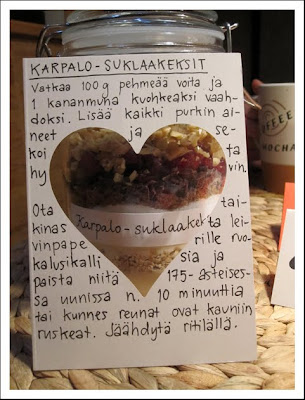 KARPALO-SUKLAAKEKSIT
Vatkaa 100g pehmeää voita ja
1 kananmuna kuohkeaksi vaah-
doksi. Lisää kaikki purkin ai-
neet ja se-
koi ta
hy vin.
Ota tai-
kinas ta lei-
Karpalo-suklaakek
vinpape rille ruo-
kalusikalli sia ja
paista niitä 175-asteises-
sa uunissa n. 10 minuuttia
tai kunnes reunat ovat kauniin
ruskeat. Jäähdytä ritilällä.
COFFEE
MOCHA